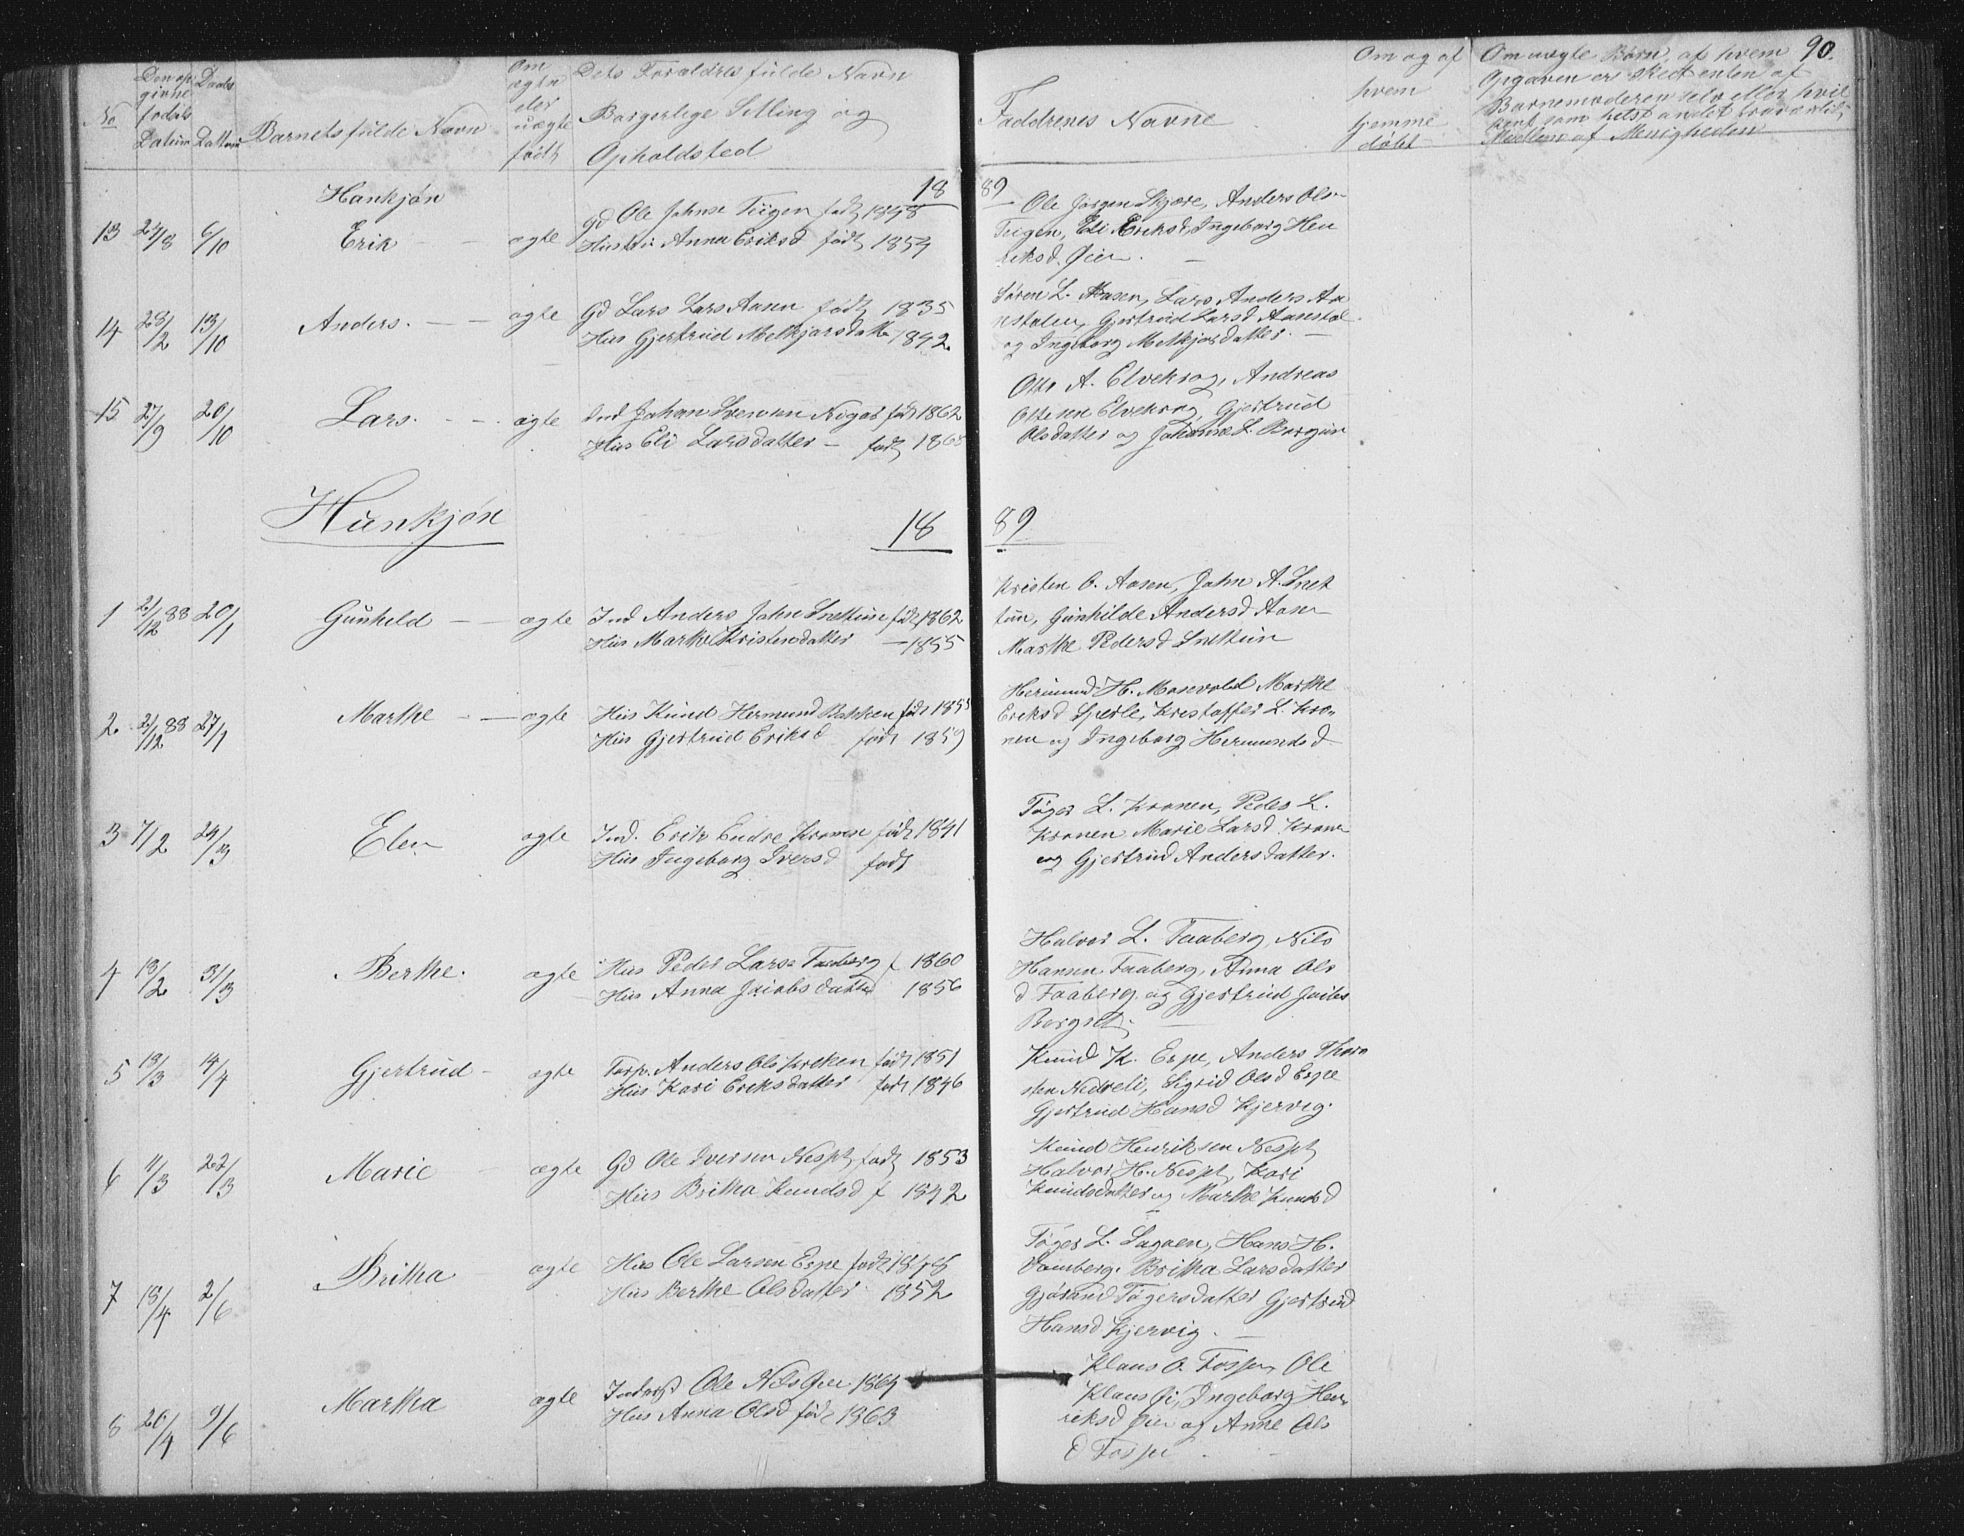 90.
No
Den op
givne
fødsels
Datum
Daabs
Datum
Barnets fulde Navn
Om
ægte
eller
uægte
født
Dets Foraldres fulde Navn
Borgerlige Stilling og
Opholdsted
Faddrenes Navne
Om og af
hvem
hjemme
døbt
Om uægte Børn, af hvem
Opgaven er skeet enten af
Barnemoderen selv eller hvil
ket som helst andet troværdigt
Medlem af Menigheden
Hankjøn
18 89
13 24/8 6/10 Erik - - ægte Gd Ole Johnse Tuigen født 1848
Hustru Anna Eriksd født 1854
Ole Jørgen Skjøre, Anders Ols-
Teigen, Eli Eriksd, Ingeborg Hen
riksd. Øien. -
14 28/2 13/10 Anders. - - ægte Gd Lars Lars Aasen født 1835
Hus Gjertrud Melkjorsdatte 1842.
Søren L. Aasen, Lars Anders Aa
nstolen, Gjertrud Larsd Aanstøl
og Ingeborg Melkjorsdatter. -
15 27/9 20/10 Lars. - -. ægte Ind Johan Svensen født 1862
Hus Eli Larsdatter - født
Otto A. Elvekrog, Andreas
Ottesen Elvekrog, Gjertrud
Olsdatter og Johanne L. Bergien
Hunkjøn
18 89
1 21/12 88 20/1 Gunheld - - ægte Ind Anders John Snettune født 1862
Hus Marthe Kristensdatter - 1855
Kristen O. Aasen, John A. Snet
tun, Gunhilde Andersd Aasn
Marthe Pedersd Snettun
2. 21/12 88 27/1 Marthe - - ægte Hus Knud Hermund Bakken født 1855
Hus Gjertrud Eriksd født 1859
Hermund H. Mosevold Marthe
Eriksd Sperle, Kristoffer L. Kro-
nen og Ingeborg Hermundsd
3 7/2 24/3 Elen ægte Ind. Erik Endre Kronen født 1841
Hus Ingeborg Iversd født
Tøger L. Kronen, Peder L.
Kronen Marie Larsd. Krone
og Gjertrud Andersdatter.
4 13/2 31/3 Berthe. ægte Hus Peder Larse Faaberg f 1860
Hus Anna Jacobsdatter 1856
Halvor L. Faaberg, Nils
Hansen Faaberg, Anna Ols
d Faaberg. og Gjertrud Jacobs
Borgset. -
5 13/3 14/4 Gjertrud - ægte Forp. Anders Ols Kreken født 1851
Hus Kari Eriksdatter født 1846
Knud K. Espe, Anders Thor
sten Nedreli, Sigrid Olsd Espe
Gjertrud Hansd Kjervig.
6 11/3 22/3 Marie ægte Gd Ole Iversen Nespt, født 1853
Hus Britha Knudsd f 1842
Knud Henriksen Nespt,
Halvor H. Nespt, Kari
Knudsdatter og Marthe Knudsd
7 13/4 2/6 Britha ægte Hus Ole Larsen Espe født 1848
Hus Berthe Olsdatter. 1852
Tøger L. Sagaen, Hans H.
Vamberg. Britha Larsdatter
Gjørand Tøgersdatter Gjertrud
Hansd Kjervig. -
8 26/4 9/6 Martha ægte Inderst Ole Nils Øien 1864
Hus Anna Olsd født 1863
Klaus O. Fossen, Ole
Klaus Øi, Ingeborg Hen
riksd Øien og Anne Ols
d Fossen. -